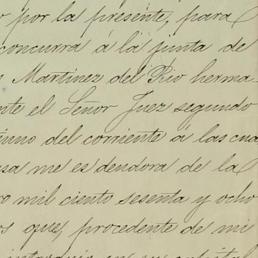 por la presente, para
concurra á la junta de
Martinez del Rio herma-
el Señor Juez segundo
del corriente á las cua
me es deudora de la
mil ciento sesenta y ocho
que, procedente de mi